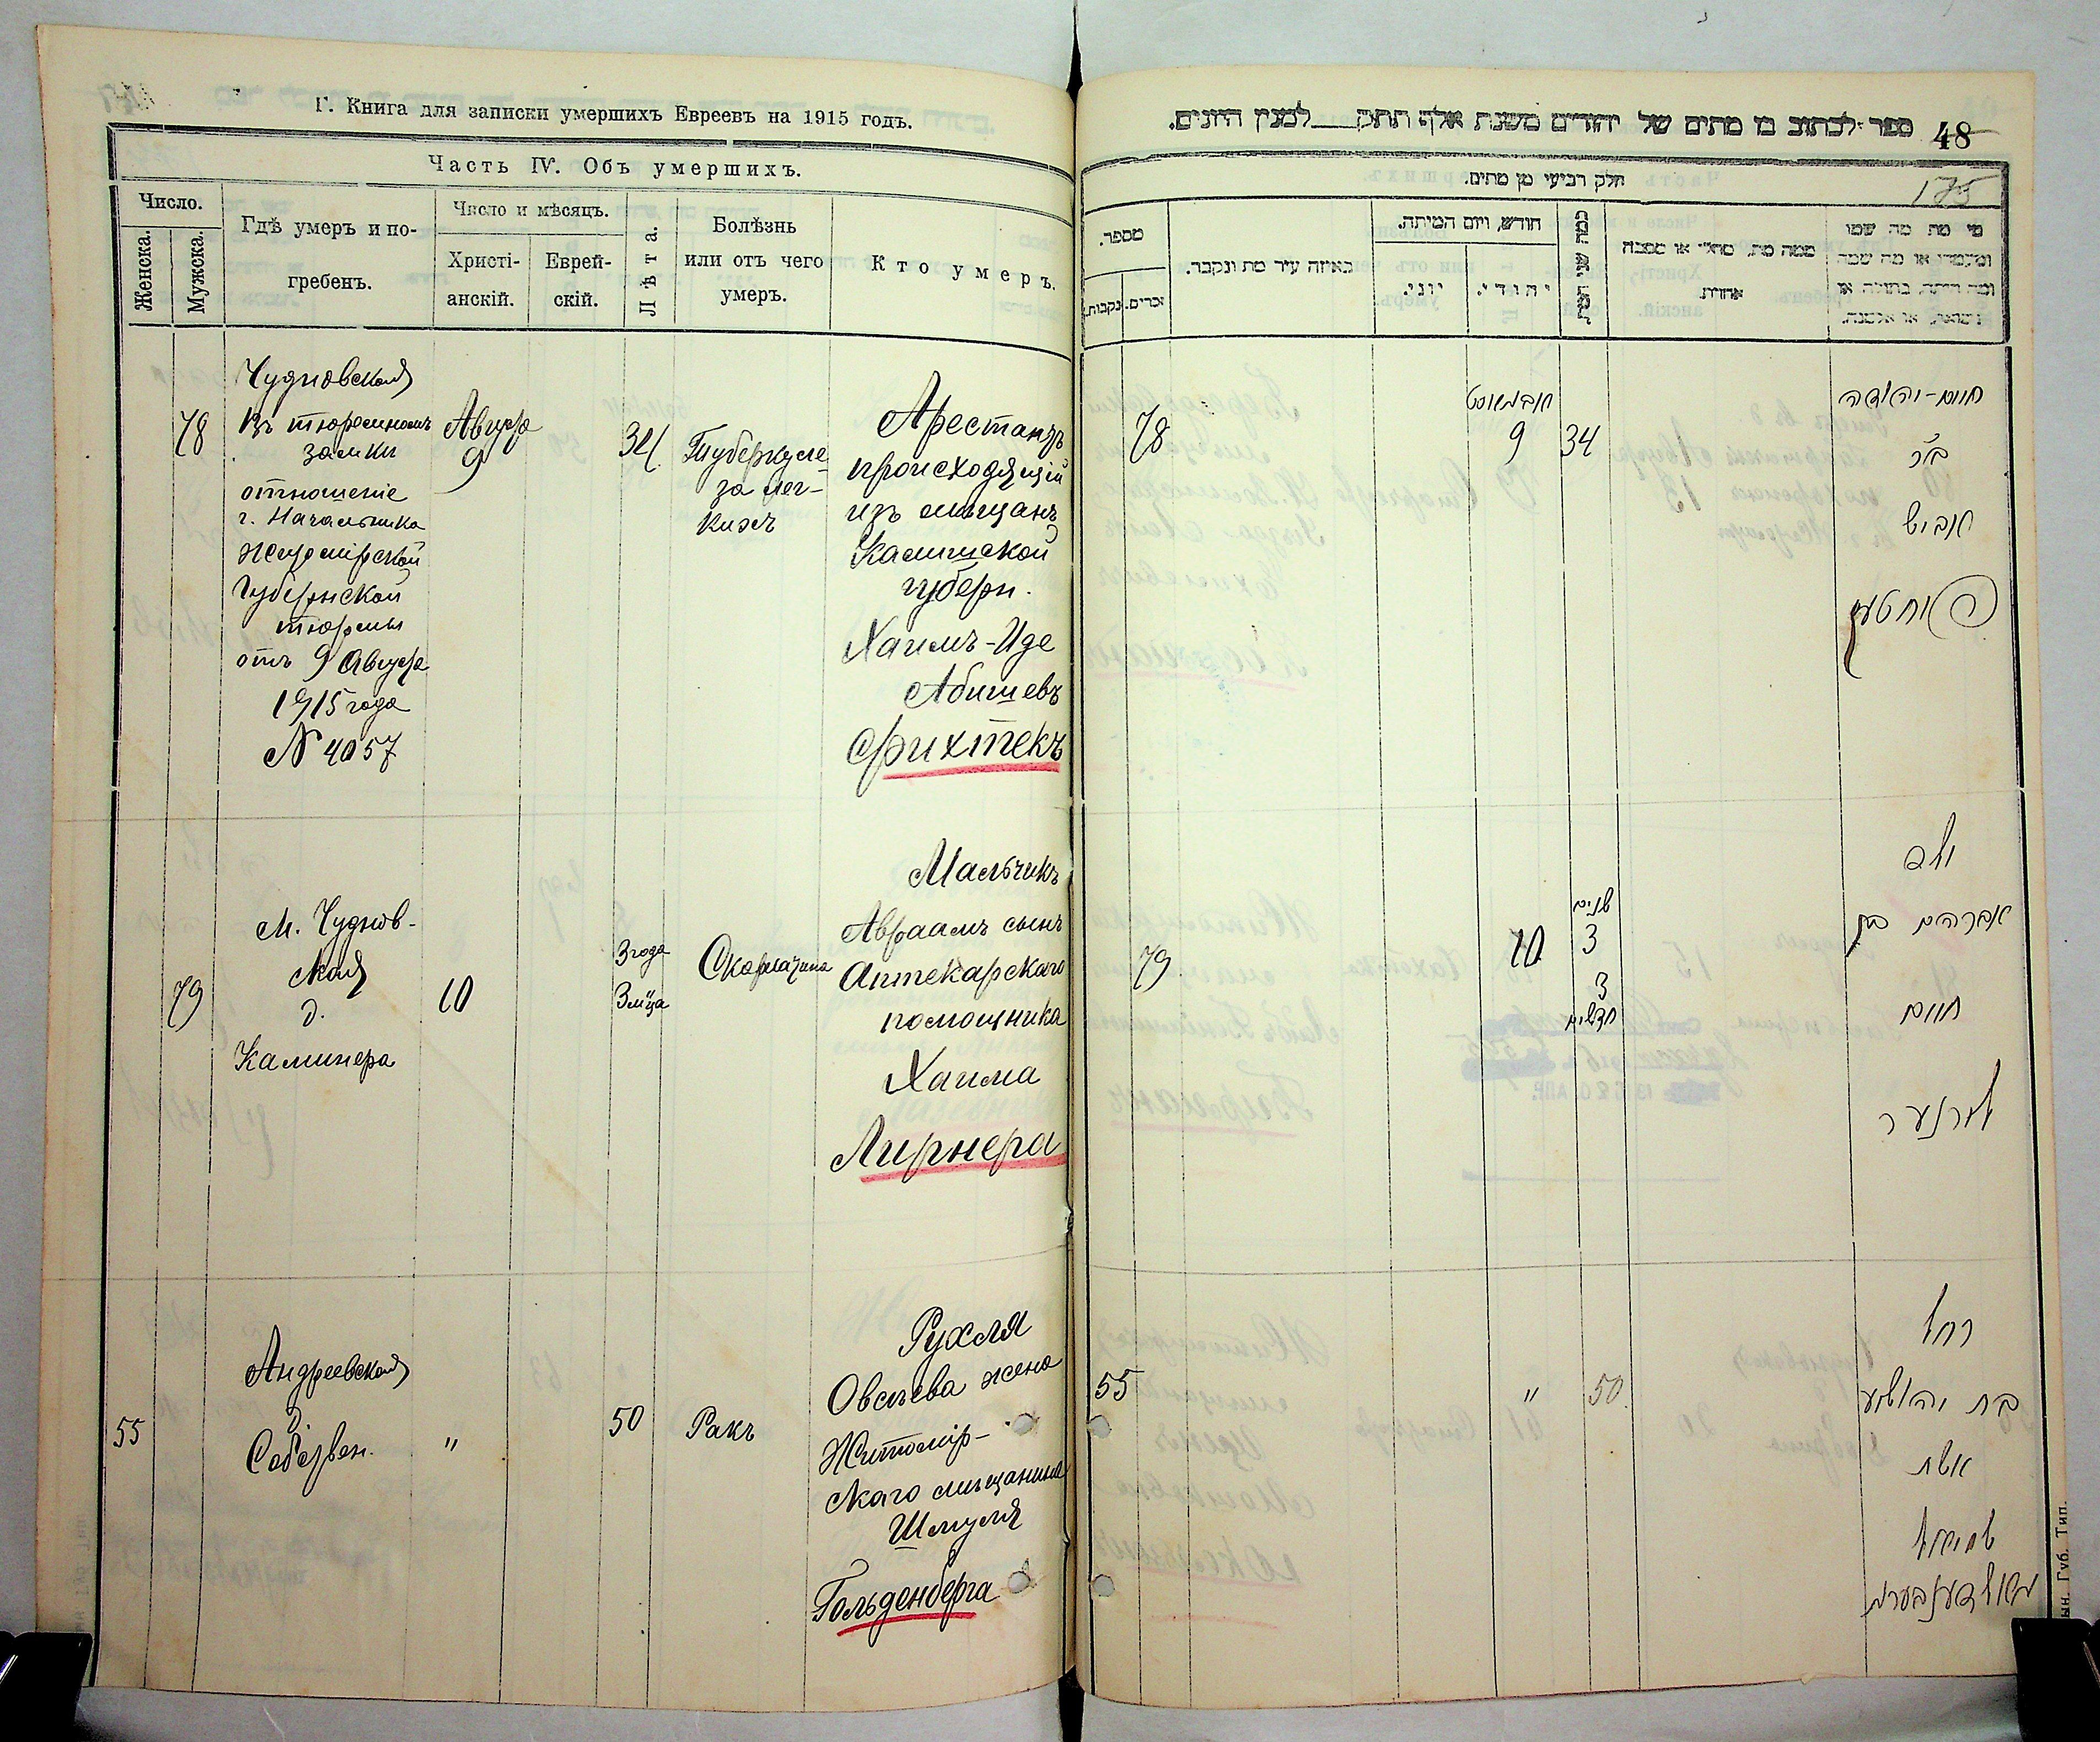 Г. Книга для записки умершихъ Евреевъ на 1915 годъ.
Часть IV. Объ умершихъ.
Число.
Женска.
Мужска.
Гдѣ умеръ и по-
гребенъ.
Число и мѣсяцъ.
Христі-
анскій.
Еврей-
скій.
Лѣта.
Болѣзнь
или отъ чего
умеръ.
Кто умеръ.
78
Чудновская
Въ тюремномъ
замки
отношеніе
г. Начальника
Житомірской
Губернской
тюрьмы
отъ 9 Августа
1915 года
N 4057
Августа
9
34
Туберкуле-
за лег-
кихъ
Арестантъ
происходящій
изъ мѣщанъ
Калишской
губерн.
Хаимъ-Иде
Абишевъ
Фихтекъ
79
М. Чуднов-
ская
д.
Каминера
10
3 года
3 м-ца
Скарлатина
Мальчикъ
Авраамъ сынъ
Аптекарскаго
помощника
Хаима
Лирнера
55
Андреевская
д.
"
50
Ракъ
Рухля
Овсѣева жена
Житомір-
скаго мѣщанина
Шмуля
Гольденберга
ספר לכתוב בו מתים של יהודים משנת אלף תתק___למנין היונים.
48
175
חלק רביעי מן מתים.
מספר.
נקבות.
זכרים.
באיזה עיר מת ונקבר.
חודש, ויום המיתה.
יוני.
יהודי.
כמה שני המת
ממה מת, מחלי או מסבה
אחרת.
מי מת מה שמו
ומעמדו או מה שמה
ומה היתה, בתולה או
נשואה, או אלמנה.
78
אבגאוסט
9
34
חיים-יהודה
ב"ר
אביש
פיחטעק
79
10
שנים
3
3
חדשים
ילד
אברהם בן
חיים
לירנער
55
"
50
רחל
בת יהושע
אשת
שמואל
גאלדענבערג
ын. Губ. Тип.